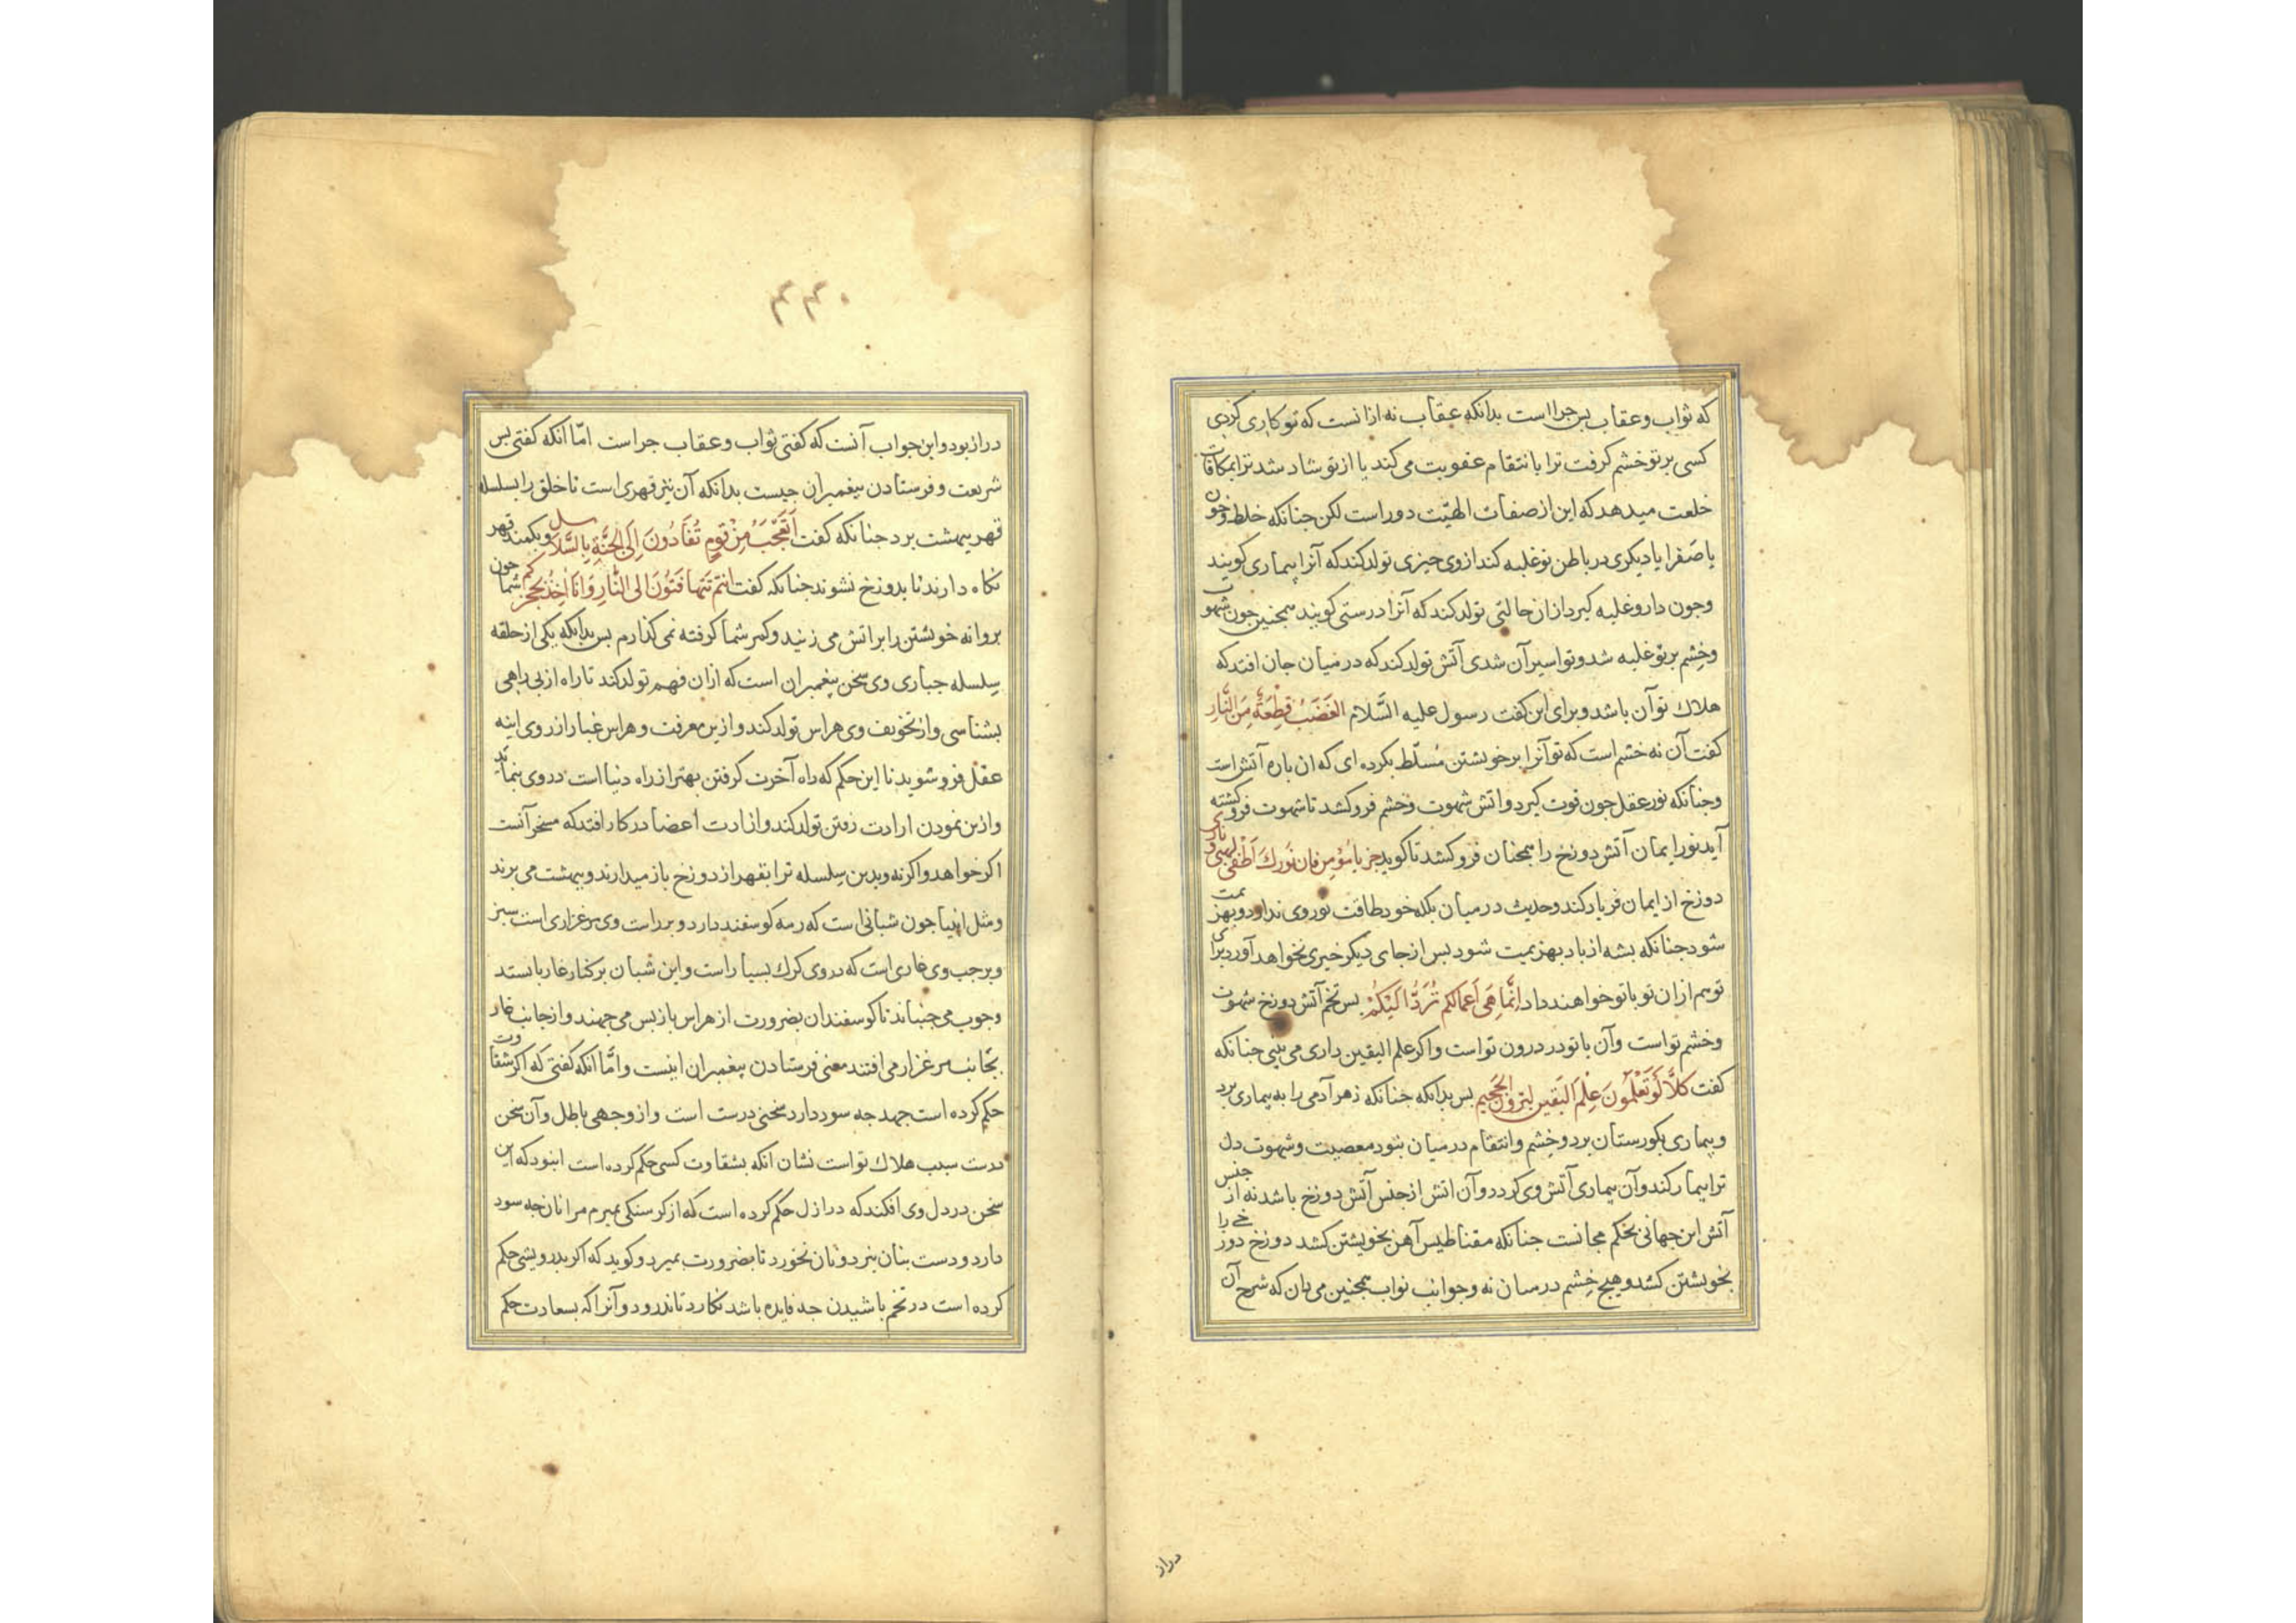 که ثواب و عقاب بس جرا است بدانکه عقاب نه ازانست که تو کاری کردی
کسی بر تو خشم کرفت ترا بانتقام عقوبت می کند یا از تو شاد شد ترا بمکافات
خلعت میدهد که این از صفات الهیّت دور است لکن جنانکه خلط و خون
یا صفرا یا دیکری در باطن تو غلبه کند از وی جیزی تولد کند که آنرا بیماری کویند
وجون دارو غلبه کیرد ازان حالتی تولد کند که آنرا درستی کویند همجنین جون شهوت
و خشم بر تو غلبه شد و تو اسیر آن شدی آتشی تولد کند که در میان جان افتد که
هلاك تو آن باشد و برای این کفت رسول علیه السَّلام الغَضَبُ قِطْعَةٌ مِنَ النَّارِ
کفت آن نه خشم است که تو آنرا بر خویشتن مُسلّط بکرده ای که ان باره آتش است
وجنانکه نور عقل جون قوت کیرد و اتش شهوت و خشم فرو کشد تا شهوت فرو کشته
آید نور ایمان آتش دوزخ را همجنان فرو کشد تا کوید جز یا مؤمن فان نورك اطفی لهبی و ناری
دوزخ از ایمان فریاد کند و حدیث در میان بلکه خود طاقت نور وی ندارد و بهزیمت
شود جنانکه بشه از باد بهزیمت شود بس از جای دیکر خیری نخواهد آورد برای
تو هم ازان تو باتو خواهند داد انَّما هِیَ اَعمالکم تُرَدُّ اِلَیْکُمْ بس تخم آتش دوزخ شهوت
و خشم تو است وآن باتو در درون تو است واکر علم الیقین داری می بینی جنانکه
کفت کَلَّا لَوْ تَعْلَمُونَ عِلْمَ الْیَقین لترونَّ الجَحیم بس بدانکه جنانکه زهر آدمی را به بیماری برد
و بیماری بکورستان برد و خشم وانتقام در میان نبود معصیت و شهوت دل
ترا بیمار کند وآن بیماری آتش وی کردد وآن اتش از جنس آتش دوزخ باشد نه از جنس
آتش این جهانی بحکم مجانست جنانکه مقناطیس آهن بخویشتن کشد دوزخ دوزخی را
بخویشتن کشد و هیج خشم در میان نه و جوانب ثواب همجنین می دان که شرح آن
دراز
۴۴۰
دراز بود و این جواب آنست که کفتی ثواب و عقاب جراست امّا انکه کفتی بس
شریعت و فرستادن بیغمبران جیست بدانکه آن نیز قهری است تا خلق را بسلسله
قهر ببهشت برد جنانکه کفت اَتَعْجَبُ مِنْ قَومٍ تُقَادُونَ اِلَی الجَنَّةِ بِالسَّلاسل و بکمند قهر
نکاه دارند تا بدوزخ نشوند جنانکه کفت انتم تَتَهافَتُونَ الی النَّارِ وَ اَنَا اٰخِذُ بحجزکم شما جون
بروانه خویشتن را بر آتش می زنید و کمر شما کرفته نمی کذارم بس بدانکه یکی از حلقه
سِلسله جباری وی سخن بیغمبران است که ازان فهم تولد کند تا راه از بی راهی
بشناسی واز تخویف وی هراس تولد کند و ازین معرفت و هراس غبار از روی اینه
عقل فرو شوید تا این حکم که راه آخرت کرفتن بهتر از راه دنیا است در وی بنماید
و ازین نمودن ارادت رفتن تولد کند و از ارادت اعضا در کار افتد که مسخر آنست
اکر خواهد و اکرنه و بدین سِلسله ترا بقهر از دوزخ باز میدارند و ببهشت می برند
و مثل انبیا جون شبانی است که رمه کوسفند دارد و بر راست وی مرغزاری است سبز
و بر جب وی غاری است که در وی کرك بسیار است و این شبان بر کنار غار بایستد
وجوب می جنباند تا کوسفندان بضرورت از هراس باز بس می جهند و از جانب غار
بجانب مرغزار می افتند معنی فرستادن بیغمبران اینست و امَّا انکه کفتی که اکر شقاوت
حکم کرده است جهد جه سود دارد سخنی درست است و از وجهی باطل و آن سخن
درست سبب هلاك تو است نشان انکه بشقاوت کسی حکم کرده است این بود که این
سخن در دل وی افکند که در ازل حکم کرده است که از کرسنکی بمیرم مرا نان جه سود
دارد و دست بنان نبرد و نان نخورد تا بضرورت بمیرد و کوید که اکر بدرویشی حکم
کرده است در تخم باشیدن جه فایده باشد نکارد تا ندرود و آنرا که بسعادت حکم